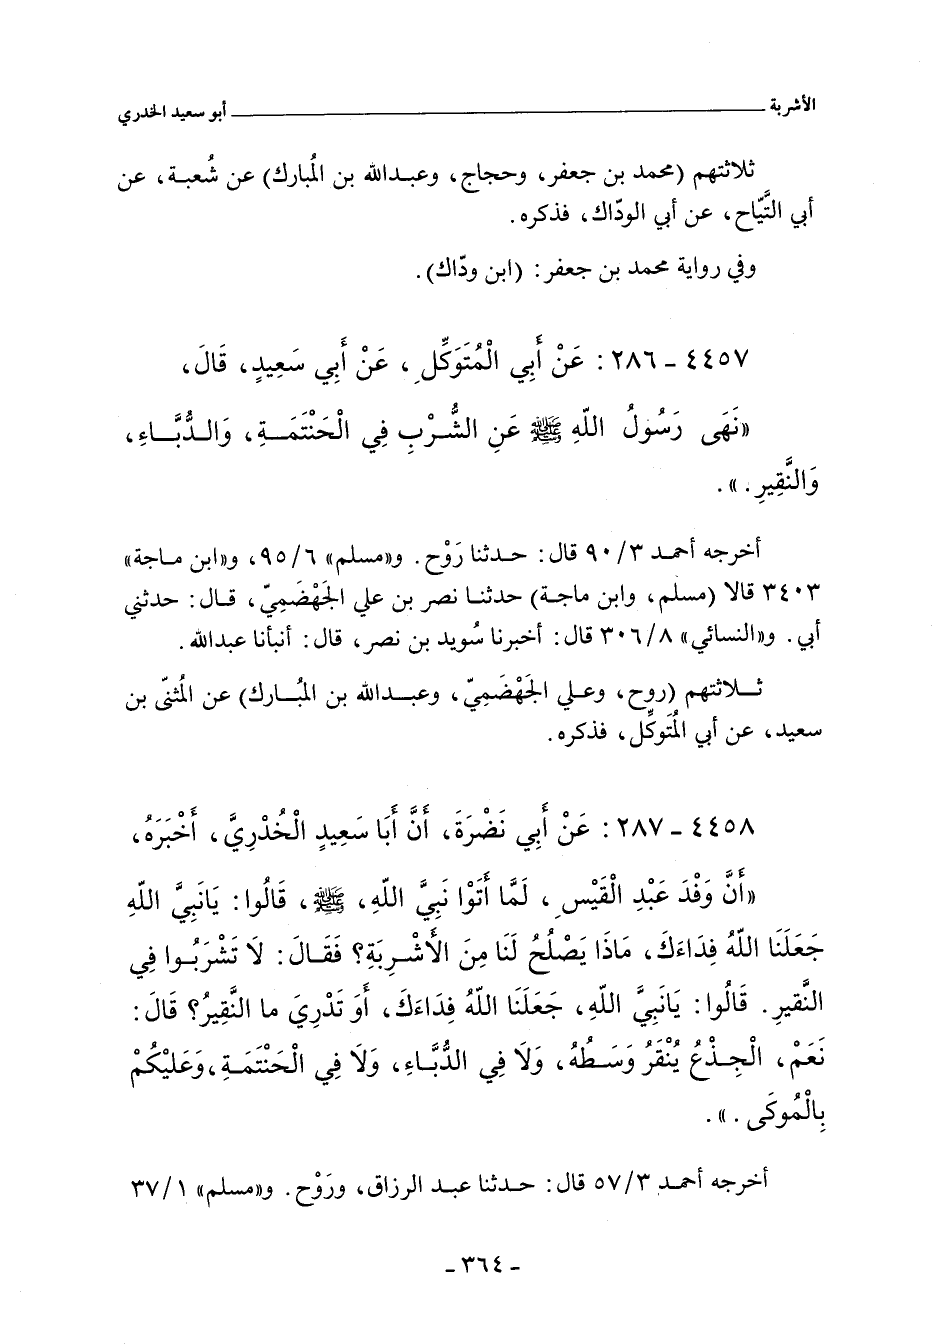 الأشربة ــــــــــــــــــــ أبو سعيد الخدري
ثلاثتهم (محمد بن جعفر، وحجاج، وعبدالله بن المُبارك) عن شُعبة، عن
أبي التَّيّاح، عن أبي الودّاك، فذكره.
وفي رواية محمد بن جعفر: (ابن ودّاك).
٤٤٥٧ ـ ٢٨٦: عَنْ أَبِي الْمُتَوَكِّلِ، عَنْ أَبِي سَعِيدٍ، قَالَ،
«نَهَى رَسُولُ اللّهِ ﷺ عَنِ الشُّرْبِ فِي الْحَنْتَمَةِ، وَالدُّبَّاءِ،
وَالنَّقِيرِ.».
أخرجه أحمد ٩٠/٣ قال: حدثنا رَوْح. و«مسلم» ٩٥/٦، و«ابن ماجة»
٣٤٠٣ قالا (مسلم، وابن ماجة) حدثنا نصر بن علي الجَهْضَمِيّ، قال: حدثني
أبي. و«النسائي» ٣٠٦/٨ قال: أخبرنا سُويد بن نصر، قال: أنبأنا عبدالله.
ثلاثتهم (روح، وعلي الجَهْضَمِيّ، وعبدالله بن المُبارك) عن المُثنّى بن
سعيد، عن أبي المُتَوكِّل، فذكره.
٤٤٥٨ ـ ٢٨٧: عَنْ أَبِي نَضْرَةَ، أَنَّ أَبَا سَعِيدٍ الْخُدْرِيَّ، أَخْبَرَهُ،
«أَنَّ وَفْدَ عَبْدِ الْقَيْسِ، لَمَّا أَتَوْا نَبِيَّ اللّهِ، ﷺ، قَالُوا: يَانَبِيَّ اللّهِ
جَعَلَنَا اللّهُ فِدَاءَكَ، مَاذَا يَصْلُحُ لَنَا مِنَ الأَشْرِبَةِ؟ فَقَالَ: لَا تَشْرَبُوا فِي
النَّقِيرِ. قَالُوا: يَانَبِيَّ اللّهِ، جَعَلَنَا اللّهُ فِدَاءَكَ، أَوَ تَدْرِيَ ما النَّقِيرُ؟ قَالَ:
نَعَمْ، الْجِذْعُ يُنْقَرُ وَسَطُهُ، وَلَا فِي الدُّبَّاءِ، وَلَا فِي الْحَنْتَمَةِ،وَعَلَيْكُمْ
بِالْمُوكَى.».
أخرجه أحمد ٥٧/٣ قال: حدثنا عبد الرزاق، ورَوْح. و«مسلم» ٣٧/١
ـ ٣٦٤ ـ